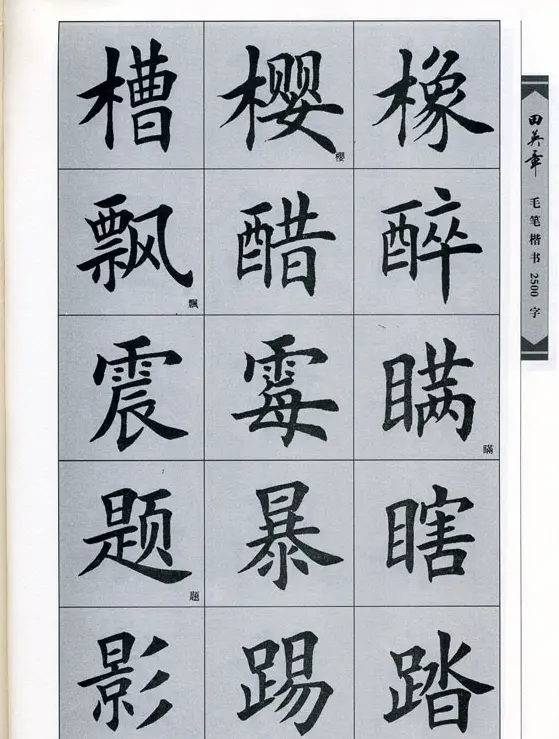 槽 樱 橡
櫻
飘 醋 醉
飄
震 霉 瞒
瞞
题 暴 瞎
題
影 踢 踏
田英章
毛笔楷书2500字